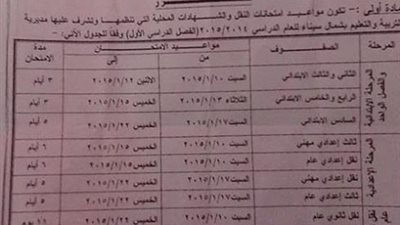 مادة أولى :- تكون مواعيد امتحانات النقل والشهادات المحلية التي تنظمها وتشرف عليها مديرية
التربية والتعليم بشمال سيناء للعام الدراسي ٢٠١٥/٢٠١٤ (الفصل الدراسي الأول) وفقا للجدول الأتي:-
المرحلة الصفوف مواعيد الامتحان مدة الامتحان
من إلى
المرحلة الابتدائية والفصل الواحد
الثاني والثالث الابتدائي السبت ٢٠١٥/١/١٠ الاثنين ٢٠١٥/١/١٢ ٣ أيام
الرابع والخامس الابتدائي الثلاثاء ٢٠١٥/١/١٣ الخميس ٢٠١٥/١/١٥ ٣ أيام
السادس الابتدائي السبت ٢٠١٥/١/١٧ الخميس ٢٠١٥/١/٢٢ ٥ أيام
المرحلة الإعدادية
ثالث إعدادي مهني السبت ٢٠١٥/١/١٠ الخميس ٢٠١٥/١/١٥ ٦ أيام
نقل إعدادي عام السبت ٢٠١٥/١/١٠ الخميس ٢٠١٥/١/١٥ ٦ أيام
نقل إعدادي مهني السبت ٢٠١٥/١/١٧ الخميس ٢٠١٥/١/٢٢ ٥ أيام
ثالث إعدادي عام السبت ٢٠١٥/١/١٧ الخميس ٢٠١٥/١/٢٢ ٥ أيام
نقل ثانوي عام السبت ٢٠١٥/١/١٠ الخميس ٢٠١٥/١/٢٢ ١١ يوم